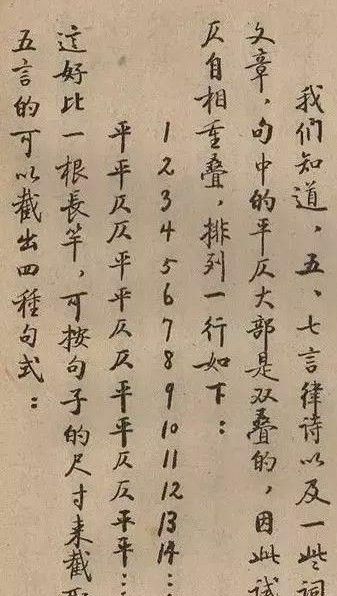 我们知道，五、七言律诗以及一些词
文章，句中的平仄大部是双叠的，因此试
仄自相重叠，排列一行如下：
1 2 3 4 5 6 7 8 9 10 11 12 13 14…
平平仄仄平平仄仄平平仄仄平平…
這好比一根長竿，可按句子的尺寸来截
五言的可以截出四種句式：